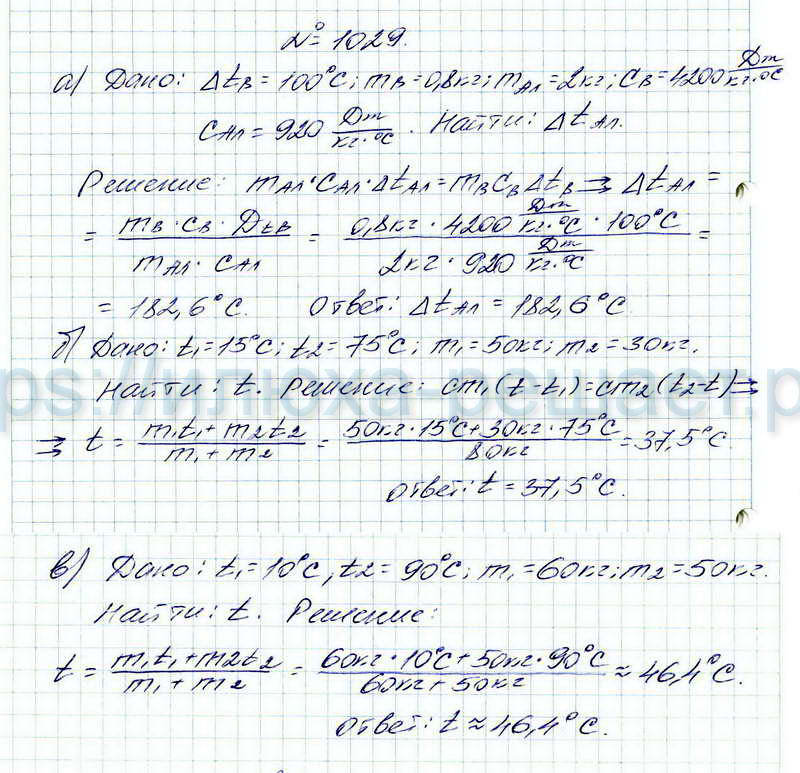 № 1029.
а) Дано: ΔtВ = 100°С; mВ = 0,8кг; mАл = 2кг; СВ = 4200 Дж/кг·°С
САл = 920 Дж/кг·°С. Найти: ΔtАл.
Решение: mАл·САл·ΔtАл = mВСВΔtВ ⇒ ΔtАл =
= mВ·СВ·DtВ/mАл·САл = 0,8кг·4200 Дж/кг·°С·100°С/2кг·920 Дж/кг·°С =
= 182,6°С. Ответ: ΔtАл = 182,6°С.
б) Дано: t₁=15°С; t2=75°С; m₁=50кг; m2=30кг.
Найти: t. Решение: Сm₁(t-t₁)=Сm2(t2-t) ⇒
⇒ t = m₁t₁+m2t2/m₁+m2 = 50кг·15°С+30кг·75°С/80кг = 37,5°С.
Ответ: t = 37,5°С.
в) Дано: t₁=10°С, t2=90°С; m₁=60кг; m2=50кг.
Найти: t. Решение:
t = m₁t₁+m2t2/m₁+m2 = 60кг·10°С+50кг·90°С/60кг+50кг ≈ 46,4°С.
Ответ: t ≈ 46,4°С.